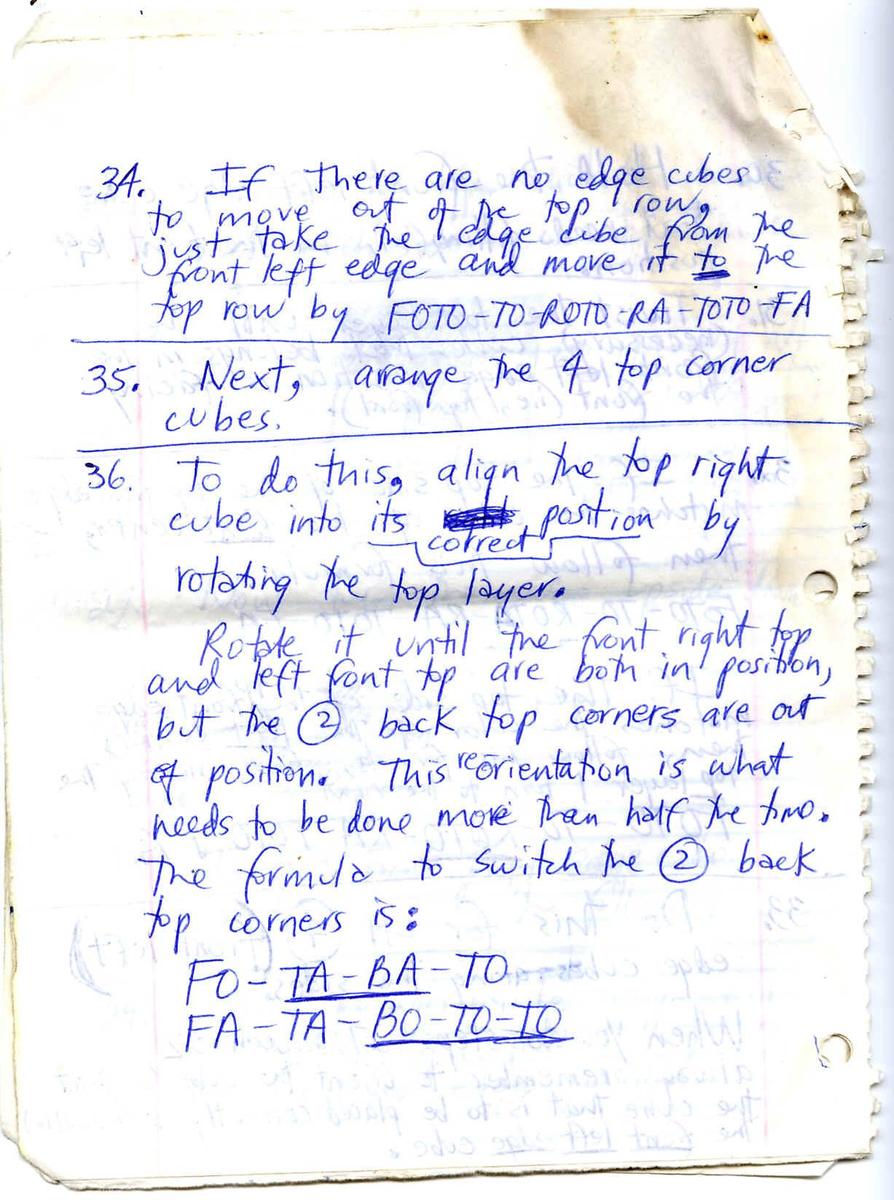 34. If there are no edge cubes
to move out of the top row,
just take the edge cube from the
front left edge and move it to the
top row by FOTO-TO-ROTO-RA-TOTO-FA
35. Next, arrange the 4 top corner
cubes.
36. To do this, align the top right
cube into its correct position by
rotating the top layer.
Rotate it until the front right top
and left front top are both in position,
but the 2 back top corners are out
of position. This reorientation is what
needs to be done more than half the time.
The formula to switch the 2 back
top corners is:
FO-TA-BA-TO
FA-TA-BO-TO-TO